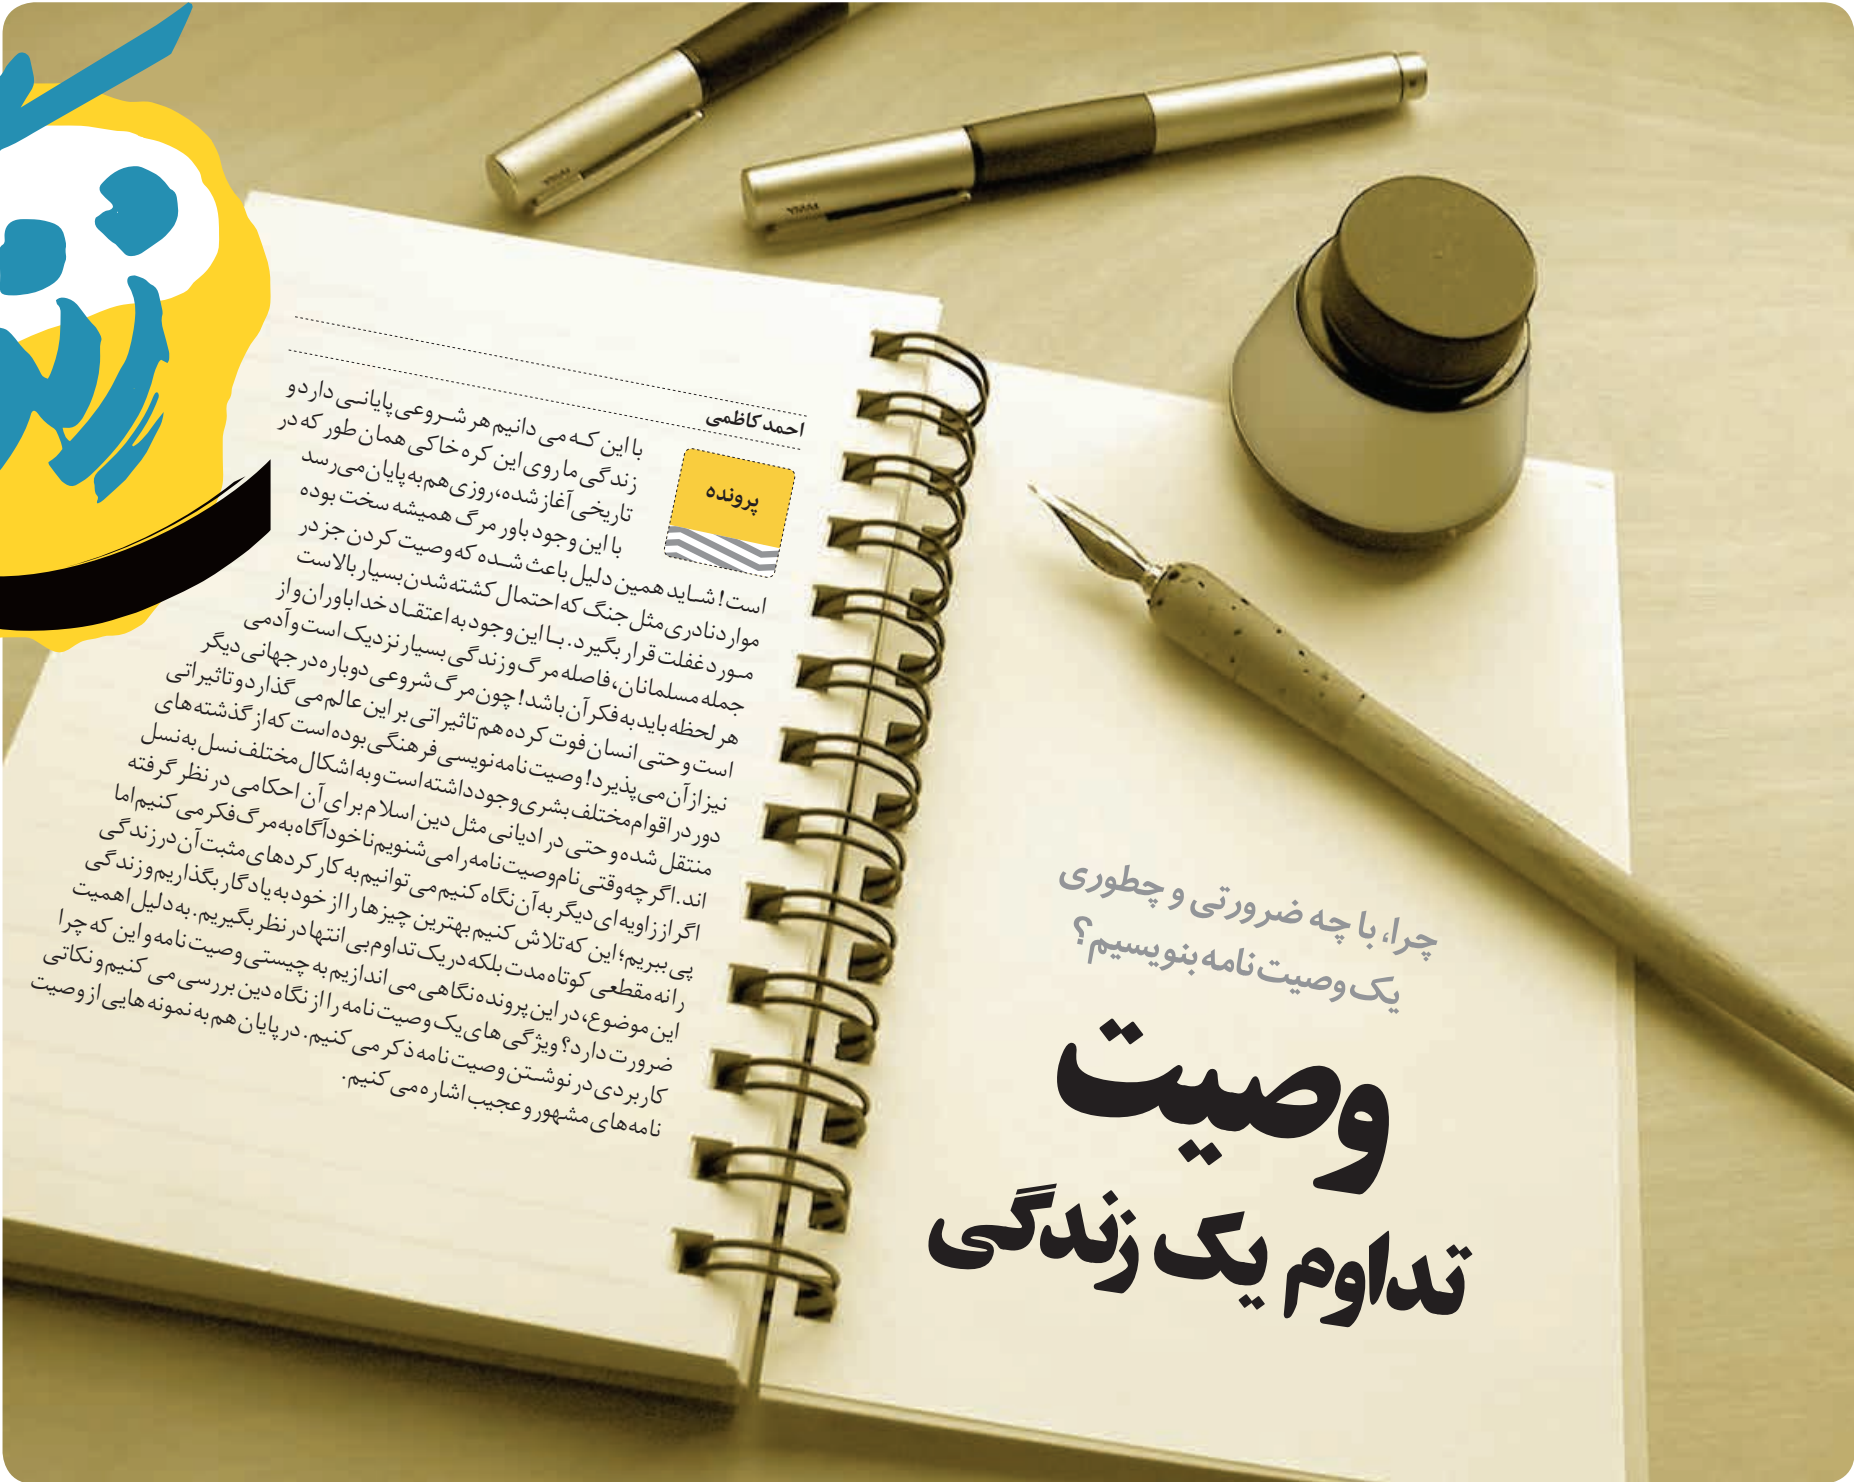 چرا، با چه ضرورتی و چطوری
یک وصیت‌نامه بنویسیم؟
وصیت
تداوم یک زندگی
احمد کاظمی
پرونده
با این کـه می دانیم هر شـروعی پایانـی دارد و
زندگی ما روی این کره خاکی همان طور که در
تاریخی آغاز شده، روزی هم به پایان می‌رسد
با این وجود باور مرگ همیشه سخت بوده
است! شـاید همین دلیل باعث شـده که وصیت کردن جز در
موارد نادری مثل جنگ که احتمال کشته شدن بسیار بالاست
مـورد غفلت قرار بگیرد. بـا این وجود به اعتقـاد خداباوران و از
جمله مسلمانان، فاصله مرگ و زندگی بسیار نزدیک است و آدمی
هر لحظه باید به فکر آن باشد! چون مرگ شروعی دوباره در جهانی دیگر
است و حتی انسان فوت کرده هم تاثیراتی بر این عالم می گذارد و تاثیراتی
نیز از آن می پذیرد! وصیت نامه نویسی فرهنگی بوده است که از گذشته های
دور در اقوام مختلف بشری وجود داشته است و به اشکال مختلف نسل به نسل
منتقل شده و حتی در ادیانی مثل دین اسلام برای آن احکامی در نظر گرفته
اند. اگر چه وقتی نام وصیت نامه را می شنویم ناخودآگاه به مرگ فکر می کنیم اما
اگر از زاویه ای دیگر به آن نگاه کنیم می توانیم به کارکردهای مثبت آن در زندگی
پی ببریم؛ این که تلاش کنیم بهترین چیزها را از خود به یادگار بگذاریم و زندگی
را نه مقطعی کوتاه مدت بلکه در یک تداوم بی انتها در نظر بگیریم. به دلیل اهمیت
این موضوع، در این پرونده نگاهی می اندازیم به چیستی وصیت نامه و این که چرا
ضرورت دارد؟ ویژگی های یک وصیت نامه را از نگاه دین بررسی می کنیم و نکاتی
کاربردی در نوشـتن وصیت نامه ذکر می کنیم. در پایان هم به نمونه هایی از وصیت
نامه های مشهور و عجیب اشاره می کنیم.